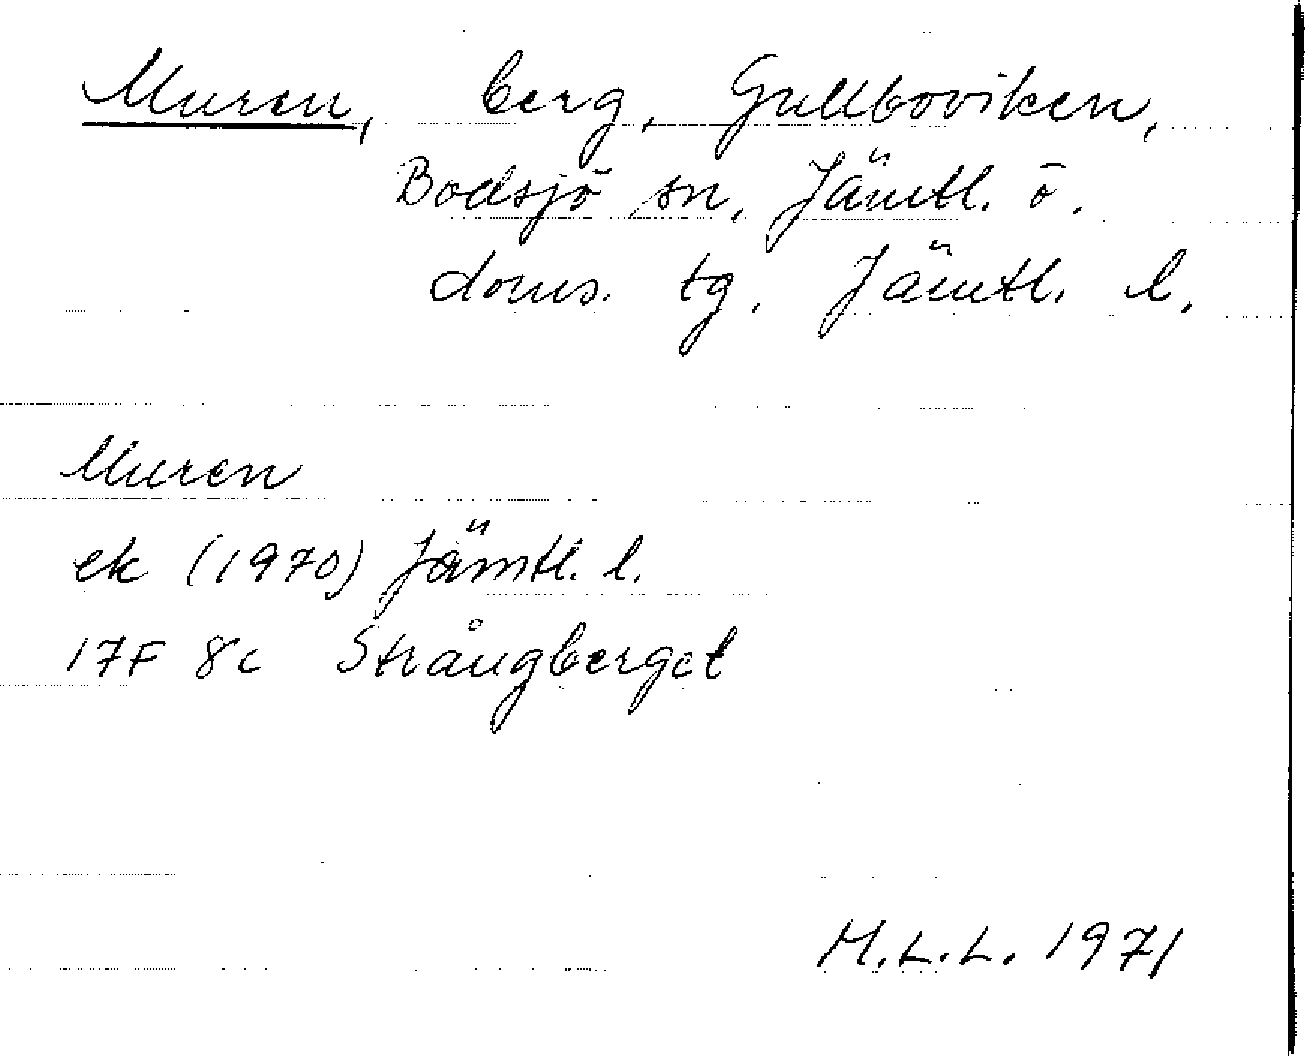 Muren, berg, Gullboviken,
Bodsjö sn, Jämtl. ö.
doms. tg, Jämtl. l.
Muren
ek (1970) Jämtl. l.
17F 8c Strångberget
M.L.L. 1971